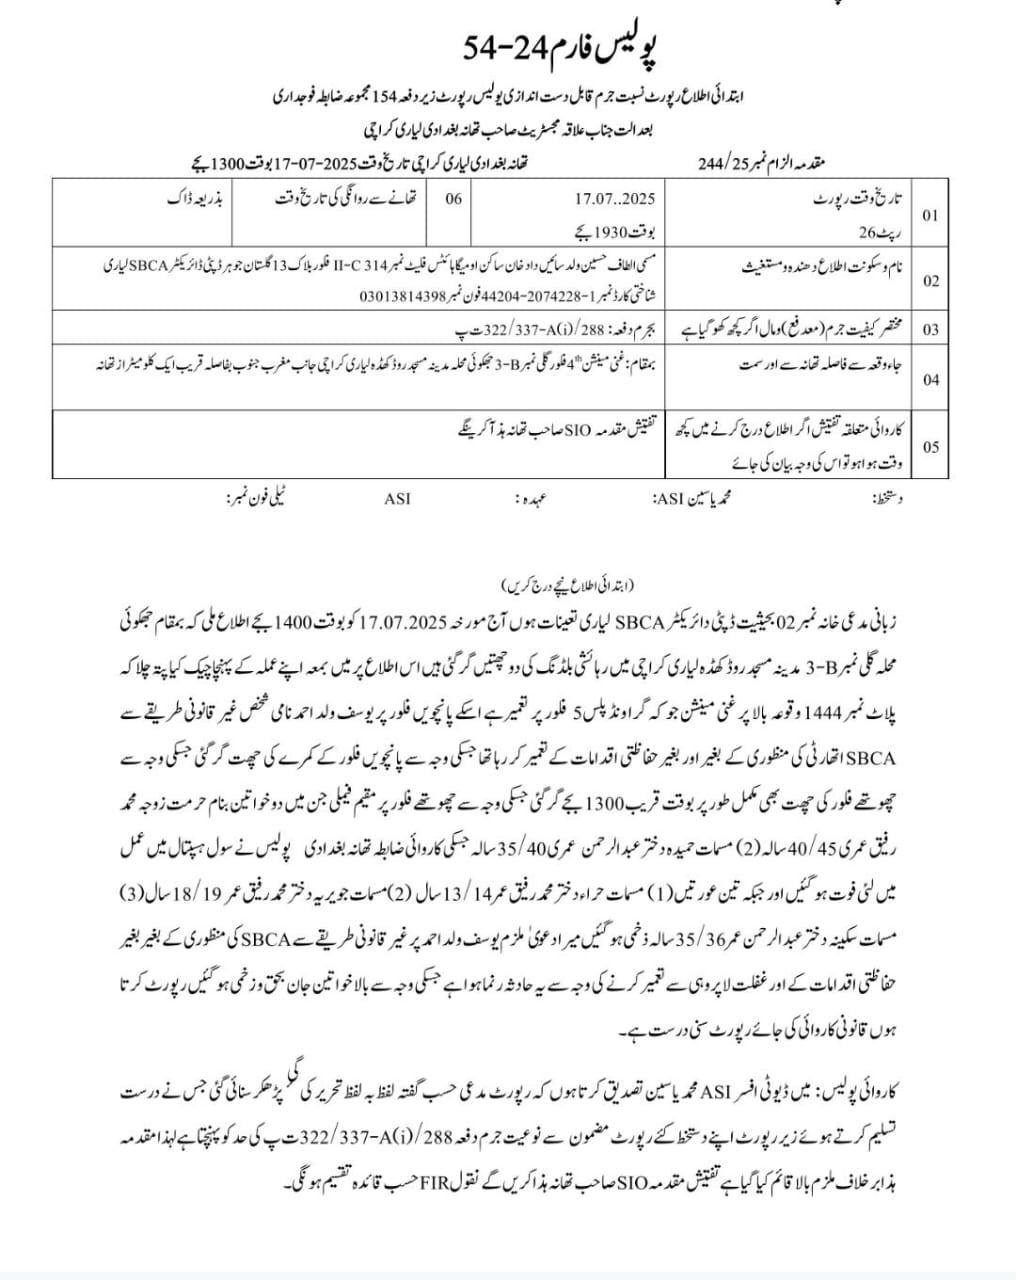 پولیس فارم 24-54
ابتدائی اطلاع رپورٹ نسبت جرم قابل دست اندازی پولیس رپورٹ زیر دفعہ 154 مجموعہ ضابطہ فوجداری
بعدالت جناب علاقہ مجسٹریٹ صاحب تھانہ بغدادی لیاری کراچی
مقدمہ الزام نمبر 244/25 تھانہ بغدادی لیاری کراچی تاریخ وقت 2025-07-17 بوقت 1300 بجے
01 تاریخ وقت رپورٹ 17.07..2025 06 تھانے سے روانگی کی تاریخ وقت بذریعہ ڈاک
رپٹ 26 بوقت 1930 بجے
02 نام و سکونت اطلاع دھندہ و مستغیث مسمی الطاف حسین ولد سائیں داد خان ساکن اومیگا ہائٹس فلیٹ نمبر 314 II-C فلور بلاک 13 گلستان جوہر ڈپٹی ڈائریکٹر SBCA لیاری
شناختی کارڈ نمبر 1-2074228-44204 فون نمبر 03013814398
03 مختصر کیفیت جرم (معہ دفع) و مال اگر کچھ کھو گیا ہے بجرم دفعہ: 322/337-A(i)/288 ت پ
04 جاء وقعہ سے فاصلہ تھانہ سے اور سمت بمقام: غنی مینشن 4th فلور گلی نمبر 3-B جھکوئی محلہ مدینہ مسجد روڈ کھڈہ لیاری کراچی جانب مغرب جنوب بفاصلہ قریب ایک کلو میٹر از تھانہ
05 کاروائی متعلقہ تفتیش اگر اطلاع درج کرنے میں کچھ تفتیش مقدمہ SIO صاحب تھانہ ہذا کرینگے
وقت ہوا ہو تو اس کی وجہ بیان کی جائے
دستخط: محمد یاسین ASI: عہدہ: ASI ٹیلی فون نمبر:
(ابتدائی اطلاع نیچے درج کریں)
زبانی مدعی خانہ نمبر 02 بحیثیت ڈپٹی دائریکٹر SBCA لیاری تعینات ہوں آج مورخہ 17.07.2025 کو بوقت 1400 بجے اطلاع ملی کہ بمقام جھکوئی
محلہ گلی نمبر 3-B مدینہ مسجد روڈ کھڈہ لیاری کراچی میں رہائشی بلڈنگ کی دو چھتیں گر گئی ہیں اس اطلاع پر میں بمعہ اپنے عملہ کے پہنچا چیک کیا پتہ چلا کہ
پلاٹ نمبر 1444 وقوعہ بالا پر غنی مینشن جو کہ گراونڈ پلس 5 فلور پر تعمیر ہے اسکے پانچویں فلور پر یوسف ولد احمد نامی شخص غیر قانونی طریقے سے
SBCA اتھارٹی کی منظوری کے بغیر اور بغیر حفاظتی اقدامات کے تعمیر کر رہا تھا جسکی وجہ سے پانچویں فلور کے کمرے کی چھت گر گئی جسکی وجہ سے
چھوتھے فلور کی چھت بھی مکمل طور پر بوقت قریب 1300 بجے گر گئی جسکی وجہ سے چھوتھے فلور پر مقیم فیملی جن میں دو خواتین بنام حرمت زوجہ محمد
رفیق عمری 40/45 سالہ (2) مسمات حمیدہ دختر عبدالرحمن عمری 35/40 سالہ جسکی کاروائی ضابطہ تھانہ بغدادی پولیس نے سول ہسپتال میں عمل
میں لئی فوت ہو گئیں اور جبکہ تین عورتیں (1) مسمات حراء دختر محمد رفیق عمر 13/14 سال (2) مسمات جویریہ دختر محمد رفیق عمر 18/19 سال (3)
مسمات سکینہ دختر عبدالرحمن عمر 35/36 سالہ ذخمی ہو گئیں میرا دعویٰ ملزم یوسف ولد احمد پر غیر قانونی طریقے سے SBCA کی منظوری کے بغیر بغیر
حفاظتی اقدامات کے اور غفلت لاپروہی سے تعمیر کرنے کی وجہ سے یہ حادثہ رنما ہوا ہے جسکی وجہ سے بالا خواتین جان بحق و زخمی ہو گئیں رپورٹ کرتا
ہوں قانونی کاروائی کی جائے رپورٹ سنی درست ہے۔
کاروائی پولیس: میں ڈیوٹی افسر ASI محمد یاسین تصدیق کرتا ہوں کہ رپورٹ مدعی حسب گفتہ لفظ بہ لفظ تحریر کی گی پڑھکر سنائی گئی جس نے درست
تسلیم کرتے ہوئے زیر رپورٹ اپنے دستخط کئے رپورٹ مضمون سے نوعیت جرم دفعہ 322/337-A(i)/288 ت پ کی حد کو پہنچتا ہے لہذا مقدمہ
ہذا بر خلاف ملزم بالا قائم کیا گیا ہے تفتیش مقدمہ SIO صاحب تھانہ ہذا کریں گے نقول FIR حسب قائدہ تقسیم ہونگی۔